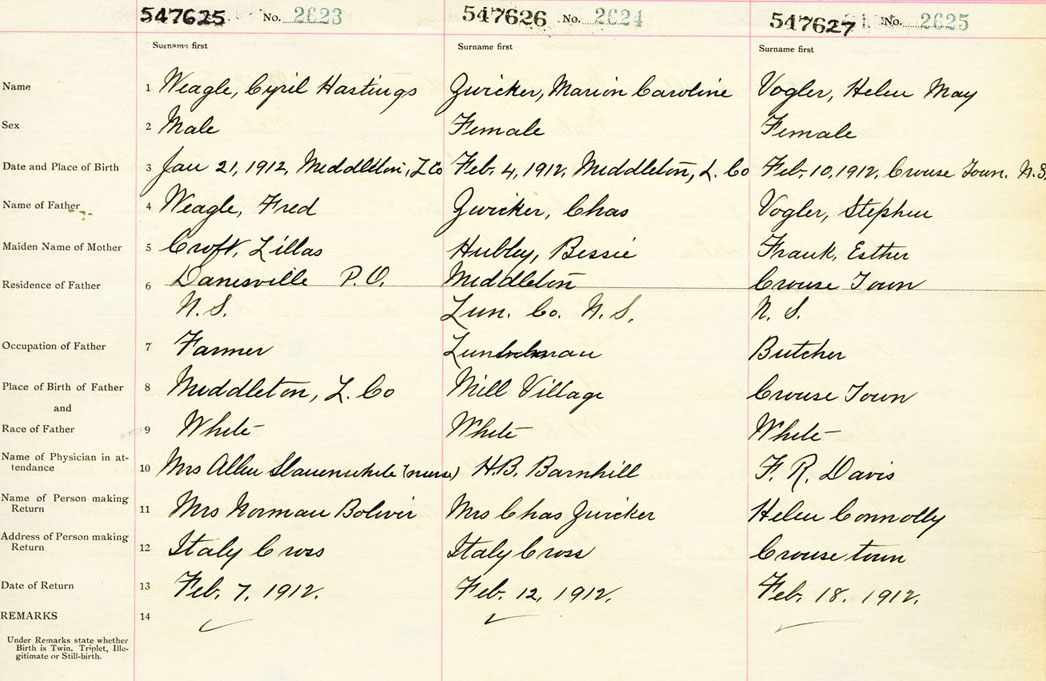 547625 No. 2623 547626 No. 2624 547627 No. 2625
Surname first Surname first Surname first
Name 1 Weagle, Cyril Hastings Zwicker, Marion Caroline Vogler, Helen May
Sex 2 Male Female Female
Date and Place of Birth 3 Jan 21, 1912, Middleton, L Co Feb. 4, 1912, Middleton, L. Co Feb. 10, 1912, Crouse Town. N.S.
Name of Father 4 Weagle, Fred Zwicker, Chas Vogler, Stephen
Maiden Name of Mother 5 Croft, Lillas Hubley, Bessie Frank, Esther
Residence of Father 6 Danesville P.O. Middleton Crouse Town
N.S. Lun. Co. N.S. N. S.
Occupation of Father 7 Farmer Butcher
Place of Birth of Father 8 Middleton, L. Co Mill Village Crouse Town
and
Race of Father 9 White White White
Name of Physician in at-
tendance 10 Mrs Allen (nurse) H.B. Barnhill F. R. Davis
Name of Person making
Return 11 Mrs Norman Boliver Mrs Chas Zwicker Helen Connolly
Address of Person making
Return 12 Italy Cross Italy Cross Crousetown
Date of Return 13 Feb. 7, 1912. Feb. 12, 1912. Feb. 18. 1912.
REMARKS 14
Under Remarks state whether
Birth is Twin, Triplet, Ille-
gitimate or Still-birth.